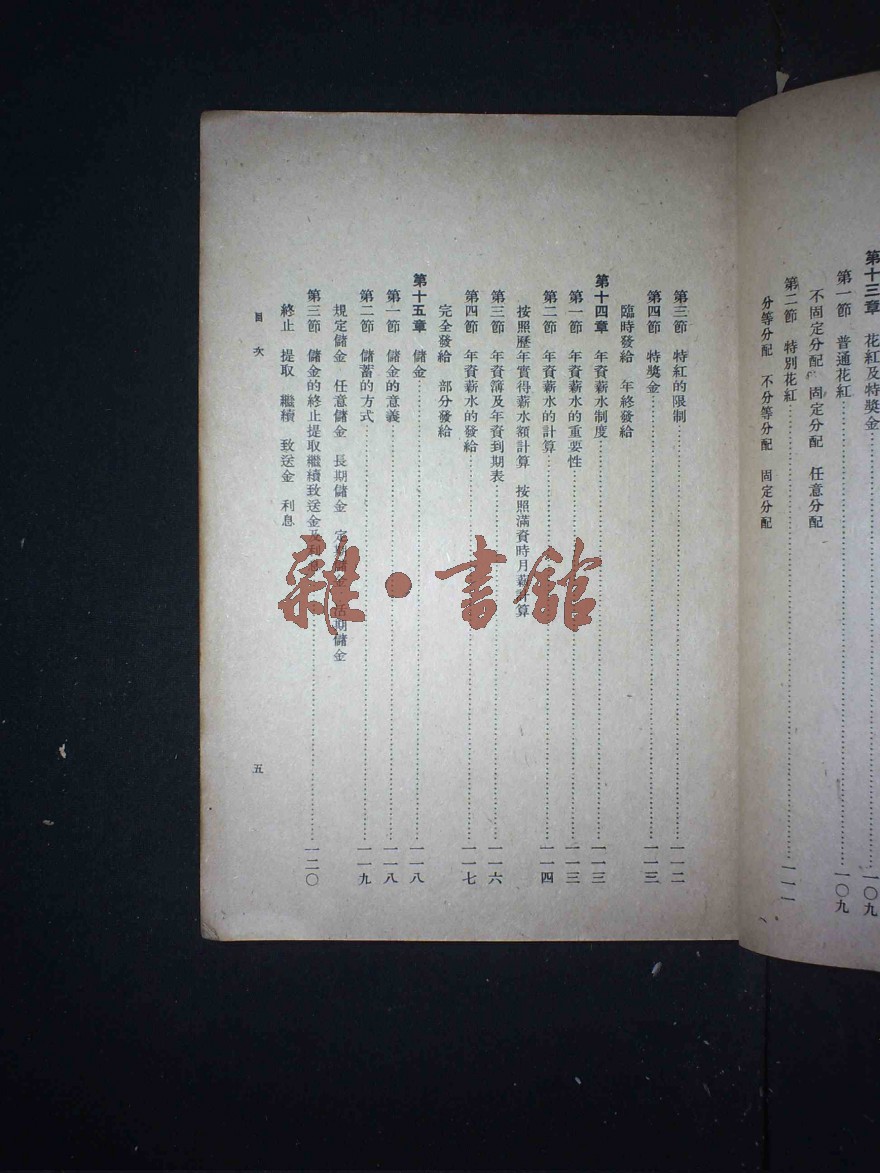 第十三章　花紅及特獎金…………一〇九
第一節　普通花紅…………一〇九
不固定分配　固定分配　任意分配
第二節　特別花紅…………一一一
分等分配　不分等分配　固定分配
第三節　特紅的限制…………一一二
第四節　特獎金…………一一三
臨時發給　年終發給
第十四章　年資薪水制度…………一一三
第一節　年資薪水的重要性…………一一三
第二節　年資薪水的計算…………一一四
按照歷年實得薪水額計算　按照滿資時月薪計算
第三節　年資簿及年資到期表…………一一六
第四節　年資薪水的發給…………一一七
完全發給　部分發給
第十五章　儲金…………一一八
第一節　儲金的意義…………一一八
第二節　儲蓄的方式…………一一九
規定儲金　任意儲金　長期儲金　定期儲金　活期儲金
第三節　儲金的終止提取繼續致送金及利息…………一二〇
終止　提取　繼續　致送金　利息
目次
五
雜·書館